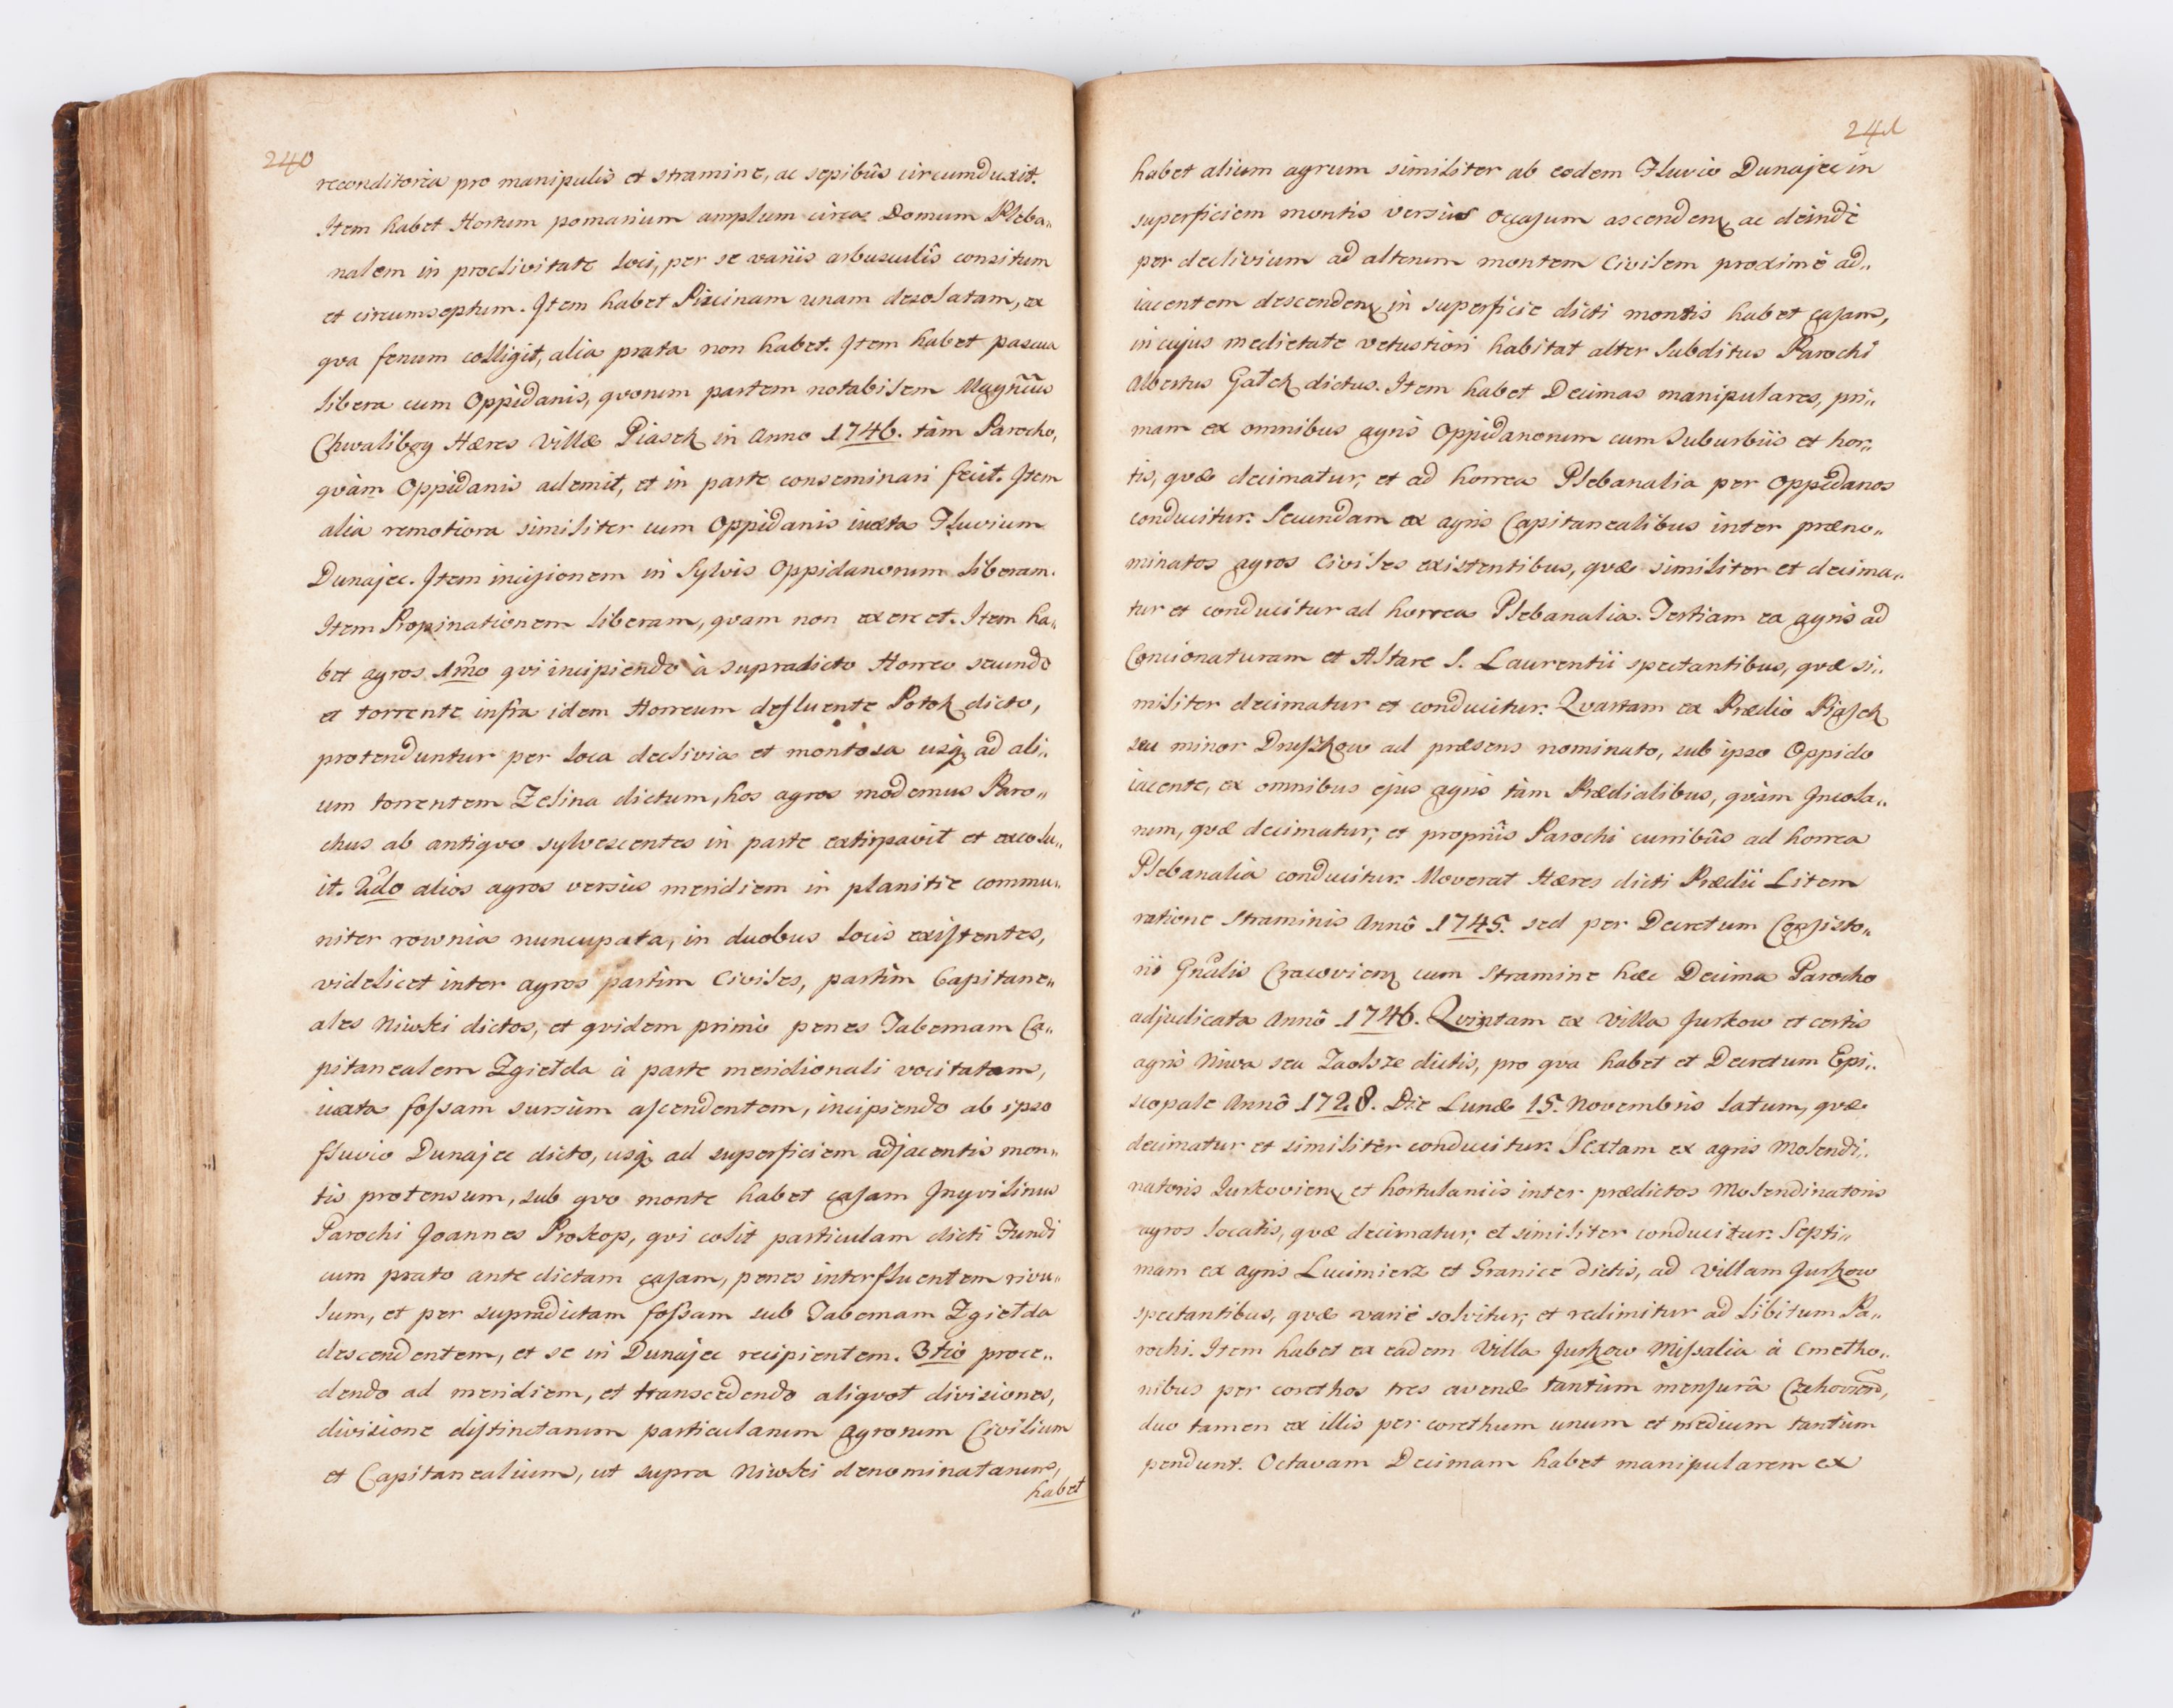 240
reconditoria pro manipulis et stramine, ac sepibûs circumduxit.
Item habet Hortum pomarium amplum circa Domum Pleba„
nalem in proclivitate loci, per se variis arbusculîs consitum
et circumseptum. Item habet Piscinam unam desolatam, ex
qva fenum colligit, alia prata non habet. Item habet pascua
libera cum Oppidanis, qvorum partem notabilem Magñcus
Chwalibog Hæres Villæ Piasek in Anno 1746. tàm Parocho,
qvàm Oppidanis ademit, et in parte conseminari fecit. Item
alia remotiora similiter cum Oppidanis iuxta Fluvium
Dunajec. Item incisionem in Sylvis Oppidanorum liberam.
Item Propinationem liberam, qvam non exercet. Item ha„
bet agros 1mo qvi incipiendo à supradicto Horreo secundo
et torrente infra idem Horreum defluente Potok dicto,
protenduntur per loca declivia et montosa usq. ad ali„
um torrentem Zelina dictum, hos agros modernus Paro„
chus ab antiqvo sylvescentes in parte extirpavit et excolu„
it. 2do alios agros versùs meridiem in planitie commu„
niter rownia nuncupata, in duobus locis existentes,
videlicet inter agros partim Civiles, partim Capitane„
ales Niwski dictos, et qvidem primò penes Tabernam Ca„
pitanealem Zgiełda à parte meridionali vocitatam,
iuxta fossam sursùm ascendentem, incipiendo ab ipso
fluvio Dunajec dicto, usq. ad superficiem adjacentis mon„
tis protensum, sub qvo monte habet casam Inqvilinus
Parochi Joannes Prokop, qvi colit particulam dicti Fundi
cum prato ante dictam casam, penes interfluentem rivu„
lum, et per supradictam fossam sub Tabernam Zgiełda
descendentem, et se in Dunajec recipientem. 3tiò proce„
dendo ad meridiem, et transcedendo aliqvot divisiones,
divisione distinctarum particularum Agrorum Civilium
et Capitanealium, ut supra Niwski denominatarum,
habet
241
habet alium agrum similiter ab eodem Fluvio Dunajec in
superficiem montis versùs occasum ascendenq ac deindè
per declivium ad alterum montem Civilem proximè ad„
iacentem descendenq in superficie dicti montis habet casam,
in cujus medietate vetustiori habitat alter Subditus Parochi
Albertus Gałek dictus. Item habet Decimas manipulares, pri„
mam ex omnibus agris Oppidanorum cum Suburbiis et hor„
tis, qvæ decimatur, et ad horrea Plebanalia per Oppidanos
conducitur. Secundam ex agris Capitanealibus inter præno„
minatos agros Civiles existentibus, qvæ similiter et decima„
tur et conducitur ad horrea Plebanalia. Tertiam ex agris ad
Concionaturam et Altare S. Laurentii spectantibus, qvæ si„
militer decimatur et conducitur. Qvartam ex Prædio Piasek
seu minor Druszkow ad præsens nominato, sub ipso Oppido
iacente, ex omnibus ejus agris tàm Prædialibus, qvàm Incola„
rum, qvæ decimatur, et propriîs Parochi curribûs ad horrea
Plebanalia conducitur. Moverat Hæres dicti Prædii Litem
ratione straminis Annô 1745. sed per Decretum Consisto„
rii Gnãlis Cracovienq cum stramine hæc Decima Parocho
adjudicata Annô 1746. Qvintam ex Villa Jurkow et certis
agris Niwa seu Zaolsze dictis, pro qva habet et Decretum Epi„
scopale Annô 1728. Die Lunæ 15. Novembris latum, qvæ
decimatur et similitèr conducitur. Sextam ex agris Molendi„
natoris Jurkovienq et hortulaniis inter prædictos Molendinatoris
agros locatis, qvæ decimatur, et similiter conducitur. Septi„
mam ex agris Lucimierz et Granice dictis, ad villam Jurkow
spectantibus, qvæ variè solvitur, et redimitur ad libitum Pa„
rochi. Item habet ex eadem Villa Jurkow Missalia à Cmetho„
nibus per corethos tres avenæ tantùm mensurâ Czchovien̄,
duo tamen ex illis per corethum unum et medium tantùm
pendunt. Octavam Decimam habet manipularem ex